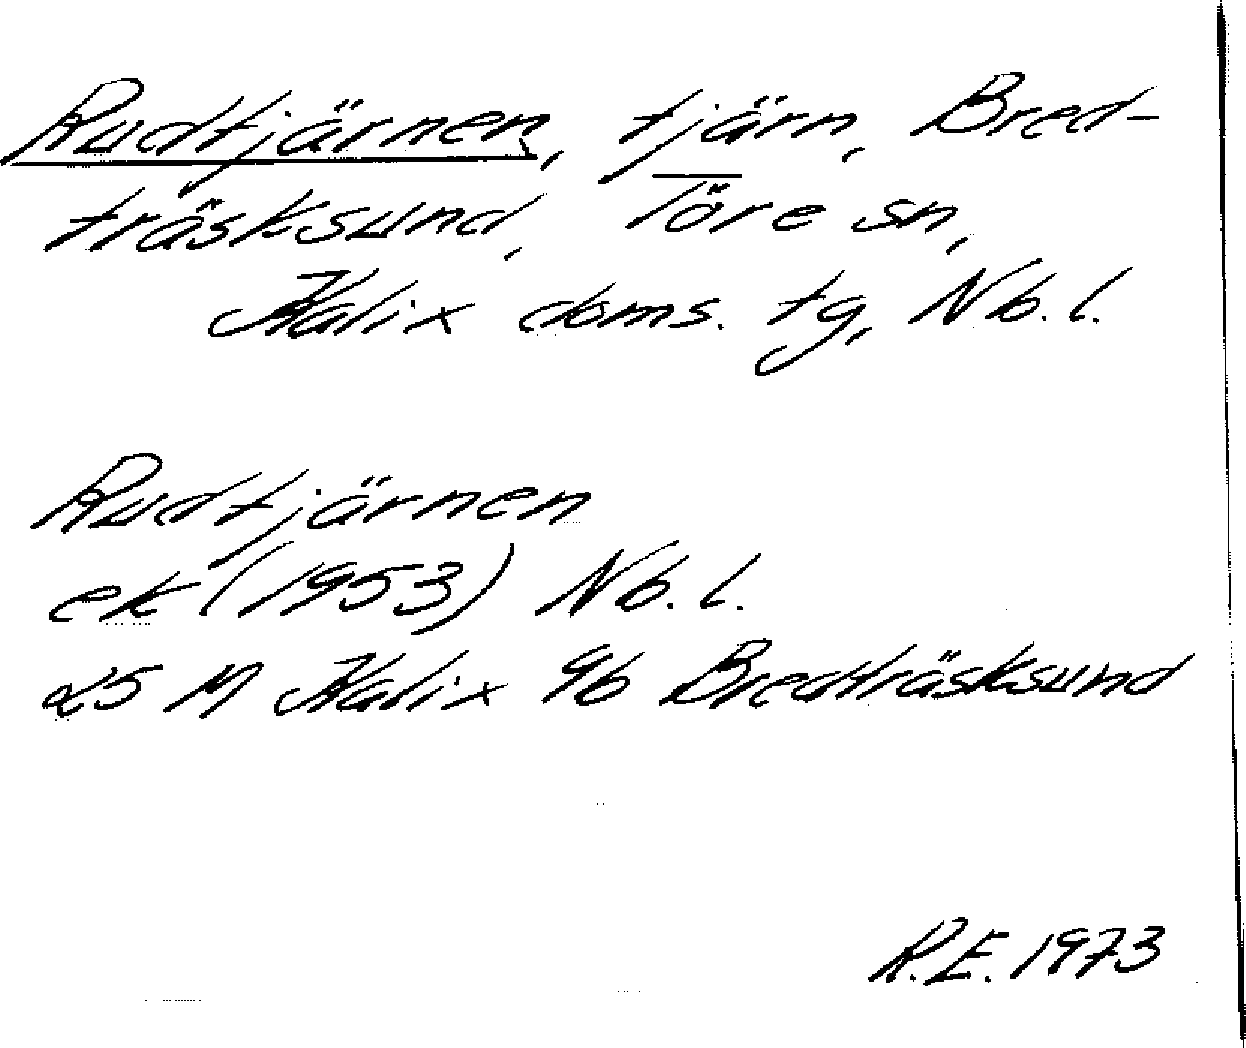 Rudtjärnen, tjärn, Bred-
träsksund, Töre sn,
Kalix doms. tg, Nb. l.
Rudtjärnen
ek (1953) Nb. l.
25 M Kalix 9b Bredträsksund
R.E. 1973